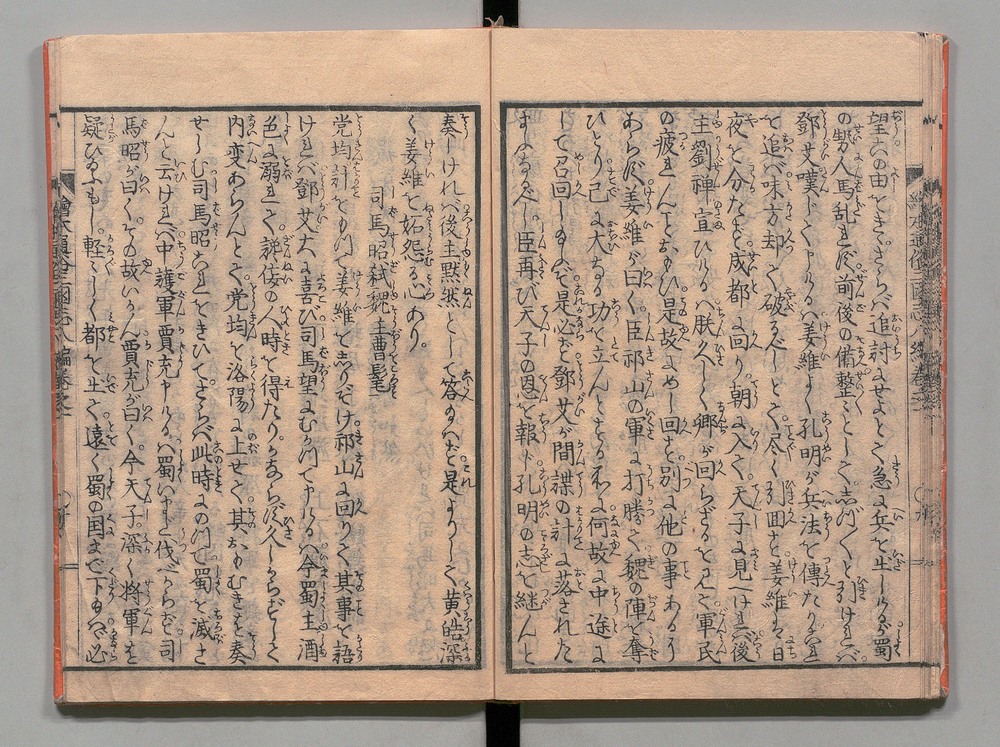 望この由をきゝさらバ追討にせよとて急に兵を出しけるが蜀
の勢人馬乱れず前後の備整々としてしづ〱と引けれバ
鄧艾嘆じて曰けるハ姜維よく孔明が兵法を傳たり
を追バ味方却て破るべしとて尽く引回す姜維ハ日
夜を分たず成都に回り朝に入て天子に見へけれバ後
主劉禅宣ひけるハ朕久しく卿が回らざるを以て軍民
の疲れんことをおもひ是故にめし回す別に他の事あるに
あらず姜維が曰く臣祁山の軍に打勝て魏の陣を奪
ひとり已に大なる功を立んとするに何故に中途に
して召回し給ふぞ是必ず鄧艾が間諜の計に落された
まふなるべし臣再び天子の恩を報ト孔明の志を継んと
奏しけれバ後主黙然として答給ハず是よりして黄皓深
く姜維を妬怨る心あり。
司馬昭弑魏主曹髦
党均計をもつて姜維をしりぞけ祁山に回りて其事を語
けれバ鄧艾大に喜び司馬望にむかつて申けるハ今蜀主酒
色に溺れて讒佞の人時を得たりかならず久しからずして
内変あらんとて党均を洛陽に上せて其おもむきを奏
せしむ司馬昭これをきひてさらバ此時にのつて蜀を滅さ
んと云けれバ中護軍賈充申けるハ蜀いまだ伐べからず司
馬昭が曰くその故いかん賈充が曰く今天子深く将軍を
疑ひ給ふもし軽々しく都を出て遠く蜀の国まで下給ハバ必